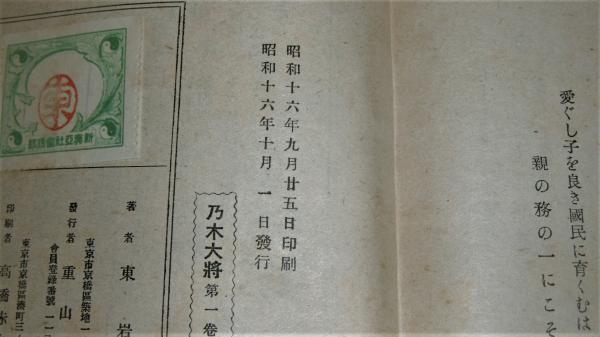 愛ぐし子を良き國民に育くむは
親の務の一にこそ
昭和十六年九月廿五日印刷
昭和十六年十月一日發行
乃木大將 第一卷
東
著者 東 岩
東京市京橋區築地一
發行者 重山
會員登錄番號 一一
東京市京橋區湊町三
印刷者 高橋